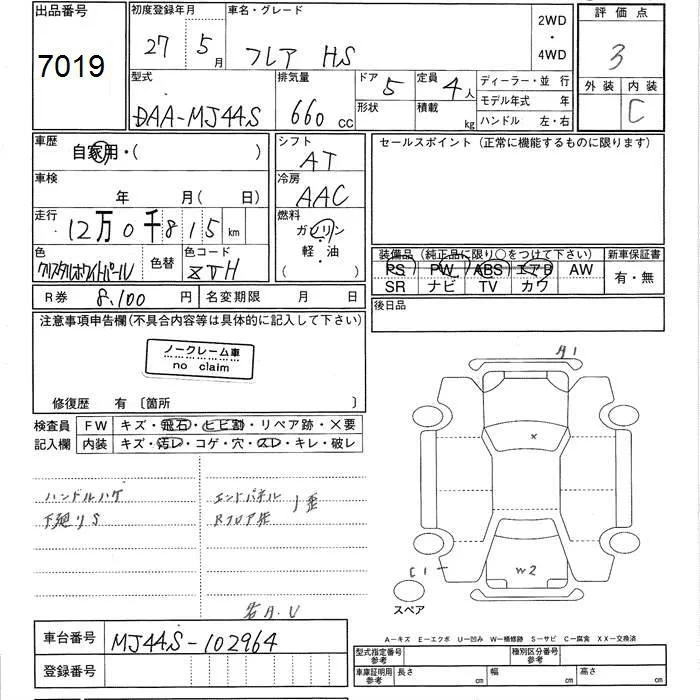 出品番号 初度登録年月 車名・グレード 評価点
7019 27年 5月 フレア HS 2WD・4WD 3
型式 排気量 ドア 5 定員 4人 ディーラー・並行 外装 内装
DAA-MJ44S 660cc 形状 積載 kg モデル年式 年 C
ハンドル 左・右
車歴 自家用・( ) シフト AT セールスポイント (正常に機能するものに限ります)
車検 年 月(日) 冷房 AAC
走行 12万0千815km 燃料 ガソリン
軽・油
( )
色 クリスタルホワイトパール 色替 色コード ZJH
装備品 (純正品に限り○をつけて下さい) 新車保証書
PS PW ABS エアB AW 有・無
SR ナビ TV カワ
R券 8,100円 名変期限 月 日 後日品
注意事項申告欄(不具合内容等は具体的に記入して下さい)
ノークレーム車
no claim
A1
修復歴 有 〔箇所 〕
検査員 FW キズ・飛石・ヒビ割・リペア跡・×要
記入欄 内装 キズ・汚レ・コゲ・穴・スレ・キレ・破レ
×
ハンドルハゲ エンドパネル 歪
下廻りS Rフロア先
C1 W2
スペア
車台番号 MJ44S-102964
A-キズ E-エクボ U-凹み W-補修跡 S-サビ C-腐食 XX-交換済
登録番号
型式指定番号 参考 種別区分番号 参考
車庫証明用 参考 長さ cm 幅 cm 高さ cm